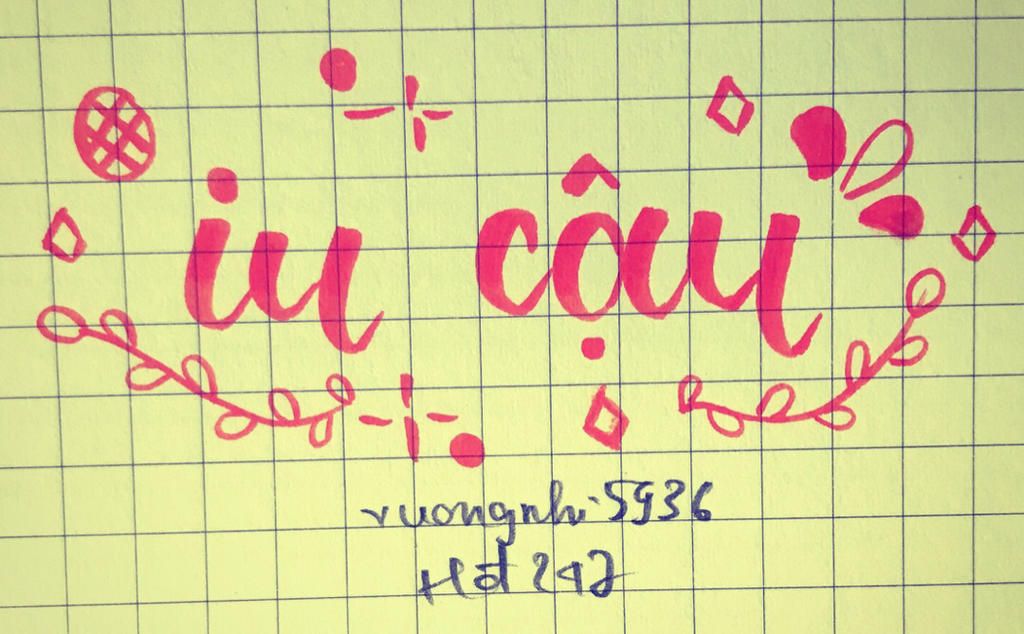 iu cậu
vuongnhi5936
Hđ 247